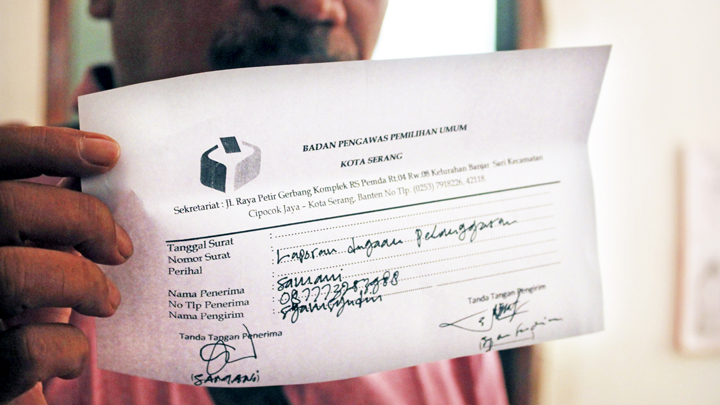 BADAN PENGAWAS PEMILIHAN UMUM
KOTA SERANG
Sekretariat : Jl. Raya Petir Gerbang Komplek RS Pemda Rt.04 Rw.08 Kelurahan Banjar Sari Kecamatan
Cipocok Jaya – Kota Serang, Banten No Tlp. (0253) 7918226, 42118.
Tanggal Surat :
Nomor Surat :
Perihal : Laporan dugaan pelanggaran
Nama Penerima : Samani
No Tlp Penerima :
Nama Pengirim : Syamsyudin
Tanda Tangan Penerima
Tanda Tangan Pengirim
(SAMANI)